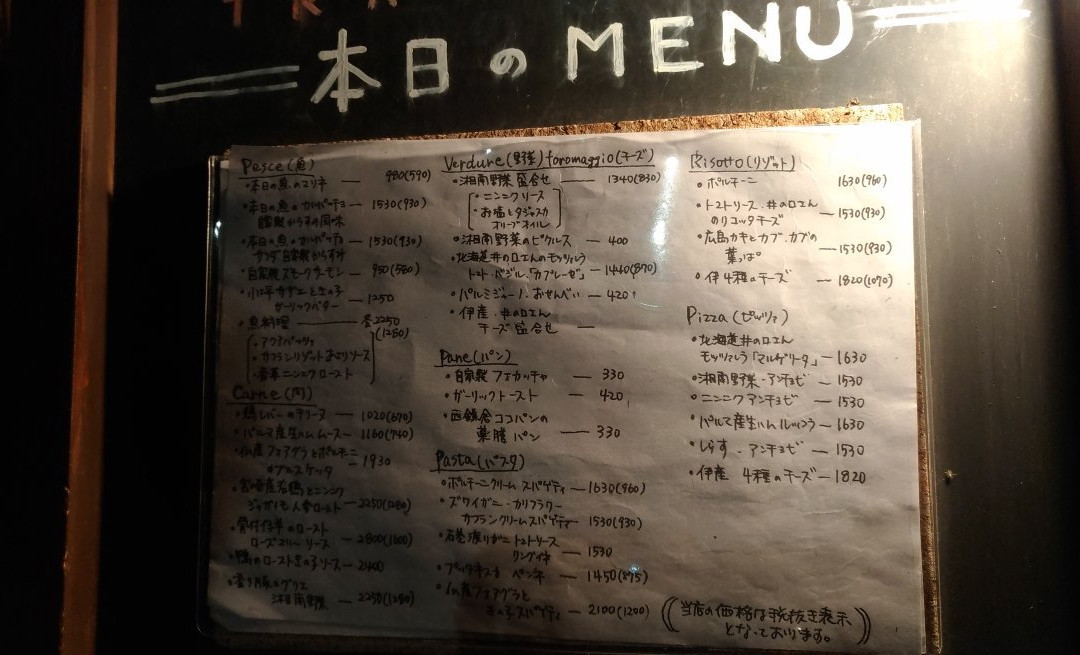 本日のMENU
Pesce(魚)
・本日の魚のマリネ — 980(590)
・本日の魚のカルパッチョ — 1530(930)
自家製からすみ風味
・本日の魚のカルパッチョ — 1530(930)
自家製からすみ
・自家製スモークサーモン — 950(580)
ガーリックバター — 1250
・魚料理 — 各2250
(1280)
・アクアパッツァ
・サフランリゾット ソース
・香草ニンニクロースト
Carne(肉)
・鶏レバーのテリーヌ — 1020(670)
・パルマ産生ハム ムース — 1160(740)
・仏産フォアグラとポルチーニ
ブルスケッタ — 1930
・宮崎産若鶏とニンニク
ジャガイモ人参ロースト — 2250(1280)
・骨付仔羊のロースト
ローズマリーソース — 2800(1600)
・鴨のロースト きの子ソース — 2400
・香り豚のグリエ
湘南野菜 — 2250(1280)
Verdure(野菜) foromaggio(チーズ)
・湘南野菜 盛合せ — 1340(830)
・ニンニクソース
・お塩とタジャスカ
オリーブオイル
・湘南野菜のピクルス — 400
・北海道井の口さんのモッツァレラ
トマト・バジル・「カプレーゼ」 — 1440(870)
・パルミジャーノ・おせんべい — 420
・伊産・井の口さん
チーズ盛合せ —
Pane(パン)
・自家製フォカッチャ — 330
・ガーリックトースト — 420
・西鎌倉ココパンの
薬膳パン — 330
Pasta(パスタ)
・ポルチーニクリーム スパゲティ — 1630(960)
・ズワイガニ・カリフラワー
サフランクリームスパゲティ — 1530(930)
・石巻渡りガニトマトソース
リングイネ — 1530
・プッタネスカ ペンネ — 1450(875)
・仏産フォアグラと
きの子スパゲティ — 2100(1200)
Risotto(リゾット)
・ポルチーニ 1630(960)
・トマトソース・井の口さん
のリコッタチーズ — 1530(930)
・広島カキとカブ・カブの
葉っぱ — 1530(930)
・伊4種のチーズ — 1820(1070)
Pizza(ピッツァ)
・北海道井の口さん
モッツァレラ「マルゲリータ」 — 1630
・湘南野菜・アンチョビ — 1530
・ニンニク アンチョビ — 1530
・パルマ産生ハム ルッコラ — 1630
・しらす・アンチョビ — 1530
・伊産 4種のチーズ — 1820
((当店の価格は税抜き表示
となっております。))